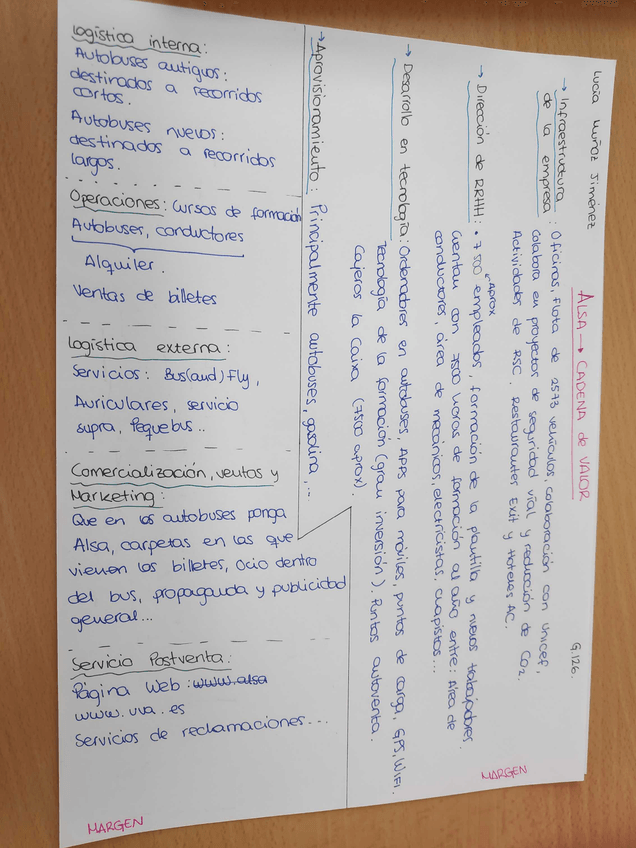 Lucía Muñoz Jiménez
G.126.
ALSA → CADENA de VALOR
→ Infraestructura de la empresa: Oficinas, flota de 2573 vehículos, colaboración con unicef,
Colabora en proyectos de seguridad vial y reducción de CO2.
Actividades de RSC. Restaurantes Exit y Hoteles AC.
→ Dirección de RRHH: • 7500 empleados, formación de la plantilla y nuevos trabajadores.
aprox
Cuentan con 7500 horas de formación al año entre: Área de
conductores, área de mecánicos, electricistas, chapistas...
→ Desarrollo en tecnología: Ordenadores en autobuses, APPs para móviles, puntos de carga, GPS, WIFI.
Tecnología de la formación (gran inversión). Puntos autoventa.
Cajeros la Caixa (7500 aprox).
→ Aprovisionamiento: Principalmente autobuses, gasolina,...
MARGEN
Logística interna:
Autobuses antiguos:
destinados a recorridos
cortos.
Autobuses nuevos:
destinados a recorridos
largos.
Operaciones: Cursos de formación
Autobuses, conductores
Alquiler.
Ventas de billetes
Logística externa:
Servicios: Bus(and)Fly,
Auriculares, servicio
supra, Pequebus..
Comercialización, ventas y
Marketing:
Que en los autobuses ponga
Alsa, carpetas en las que
vienen los billetes, Ocio dentro
del bus, propaganda y publicidad
general...
Servicio Postventa:
Página Web: www.alsa
www.uva.es
Servicios de reclamaciones...
MARGEN